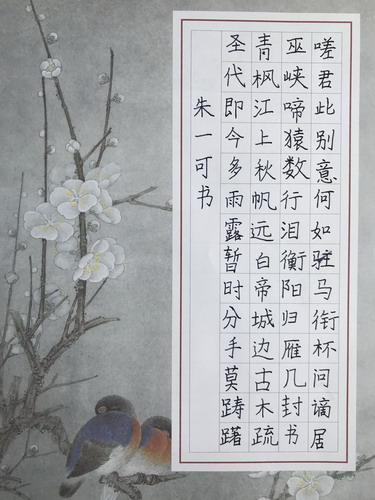 嗟君此别意何如驻马衔杯问谪居
巫峡啼猿数行泪衡阳归雁几封书
青枫江上秋帆远白帝城边古木疏
圣代即今多雨露暂时分手莫踌躇
朱一可书